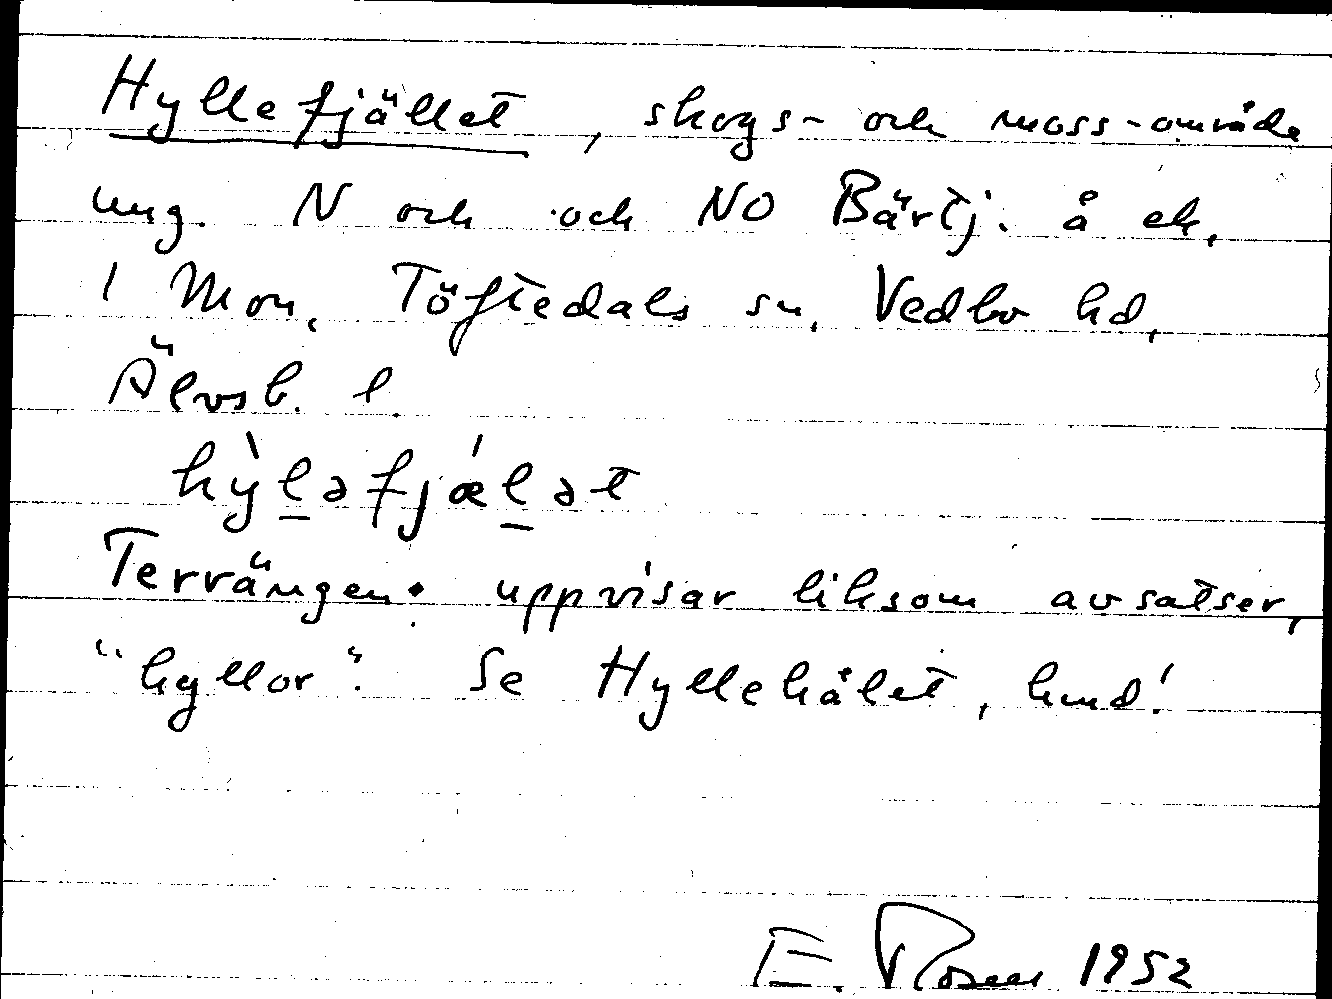 Hyllefjället, skogs- och moss-område
ung. N och och NO Bärtj. å ek.
1 Mon, Töftedals sn, Vedbo hd,
Älvsb. l.
hỳl̲əfjǽl̲ət
Terrängen uppvisar liksom avsatser,
"hyllor". Se Hyllehålet, hmd!
E. Rosell 1952